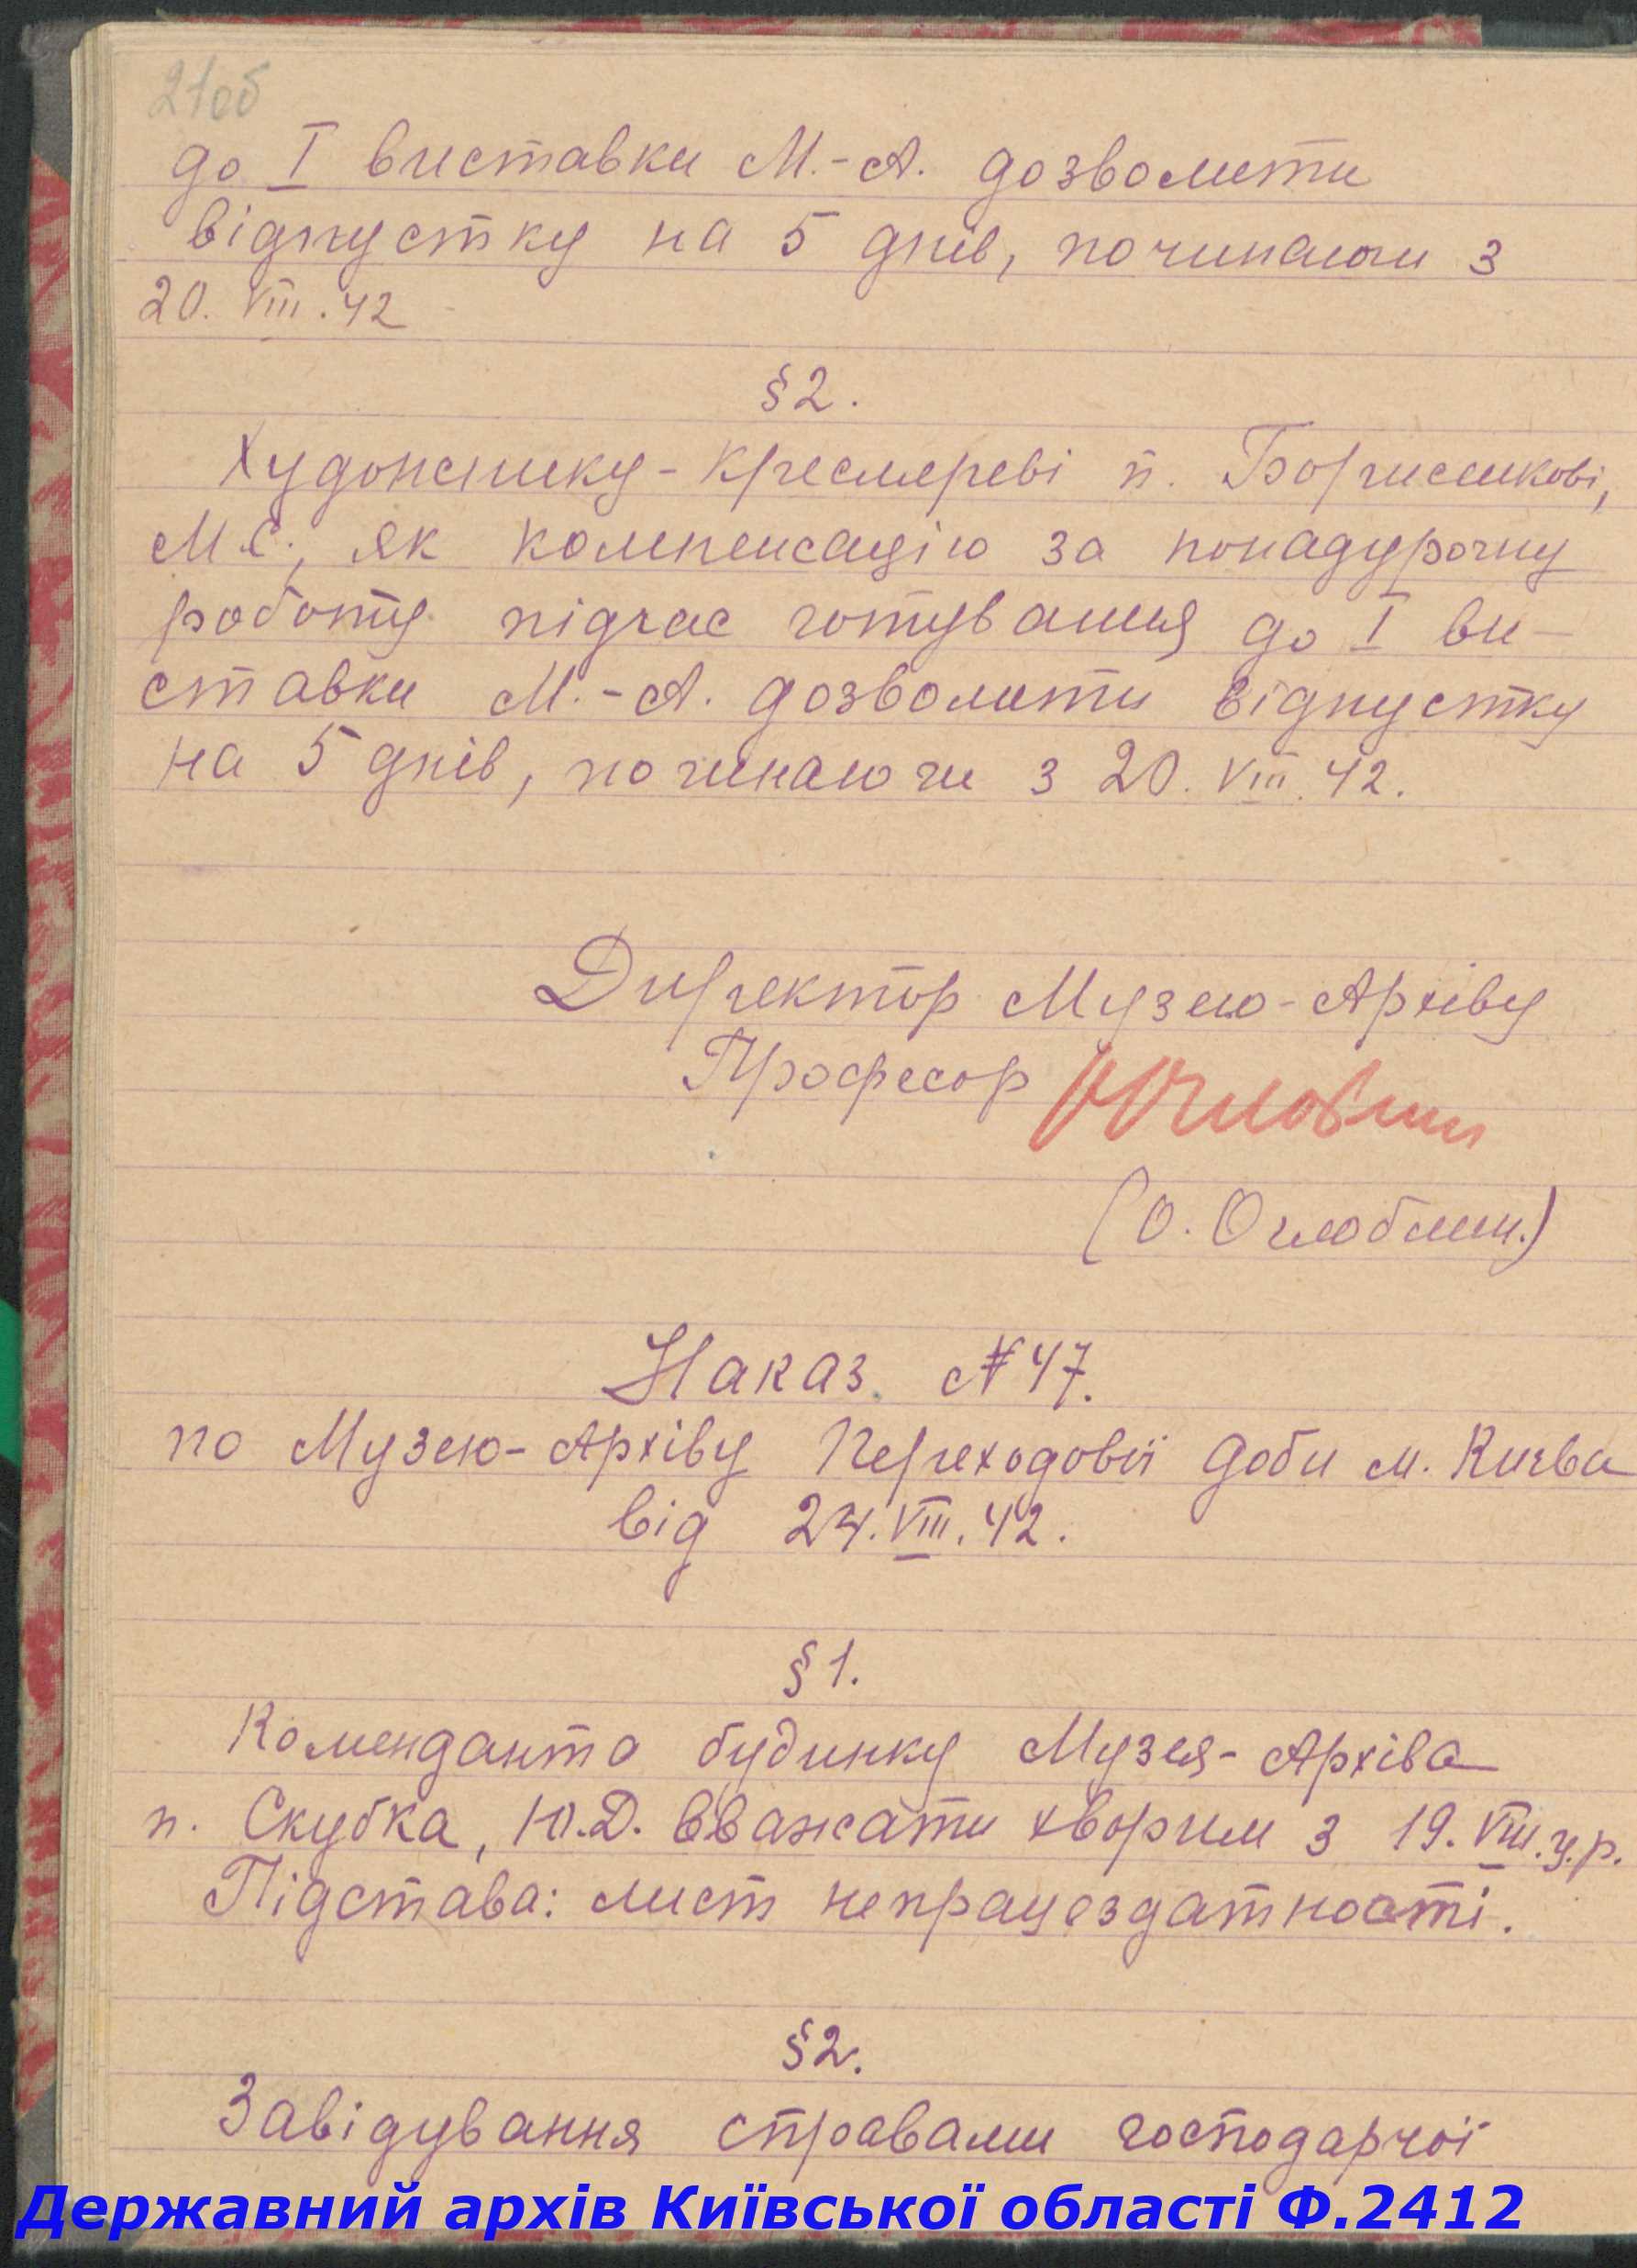 21об
до I виставки М.-А. дозволити
відпустку на 5 днів, починаючи з
20. VIII. 42
§ 2.
Художнику-креслереві п. Борисенкові,
М.Є., як компенсацію за понадурочну
роботу підчас готування до I ви-
ставки М.-А. дозволити відпустку
на 5 днів, починаючи з 20. VIII. 42.
Директор Музею-Архіву
Професор
(О. Оглоблин.)
Наказ № 47.
по Музею-Архіву Переходової доби м. Києва
від 24. VIII. 42.
§ 1.
Коменданта будинку Музея-Архіва
п. Скубка, Ю.Д. вважати хворим з 19. VIII. ц.р.
Підстава: лист непрацездатності.
§ 2.
Завідування справами господарчої
Державний архів Київської області Ф.2412